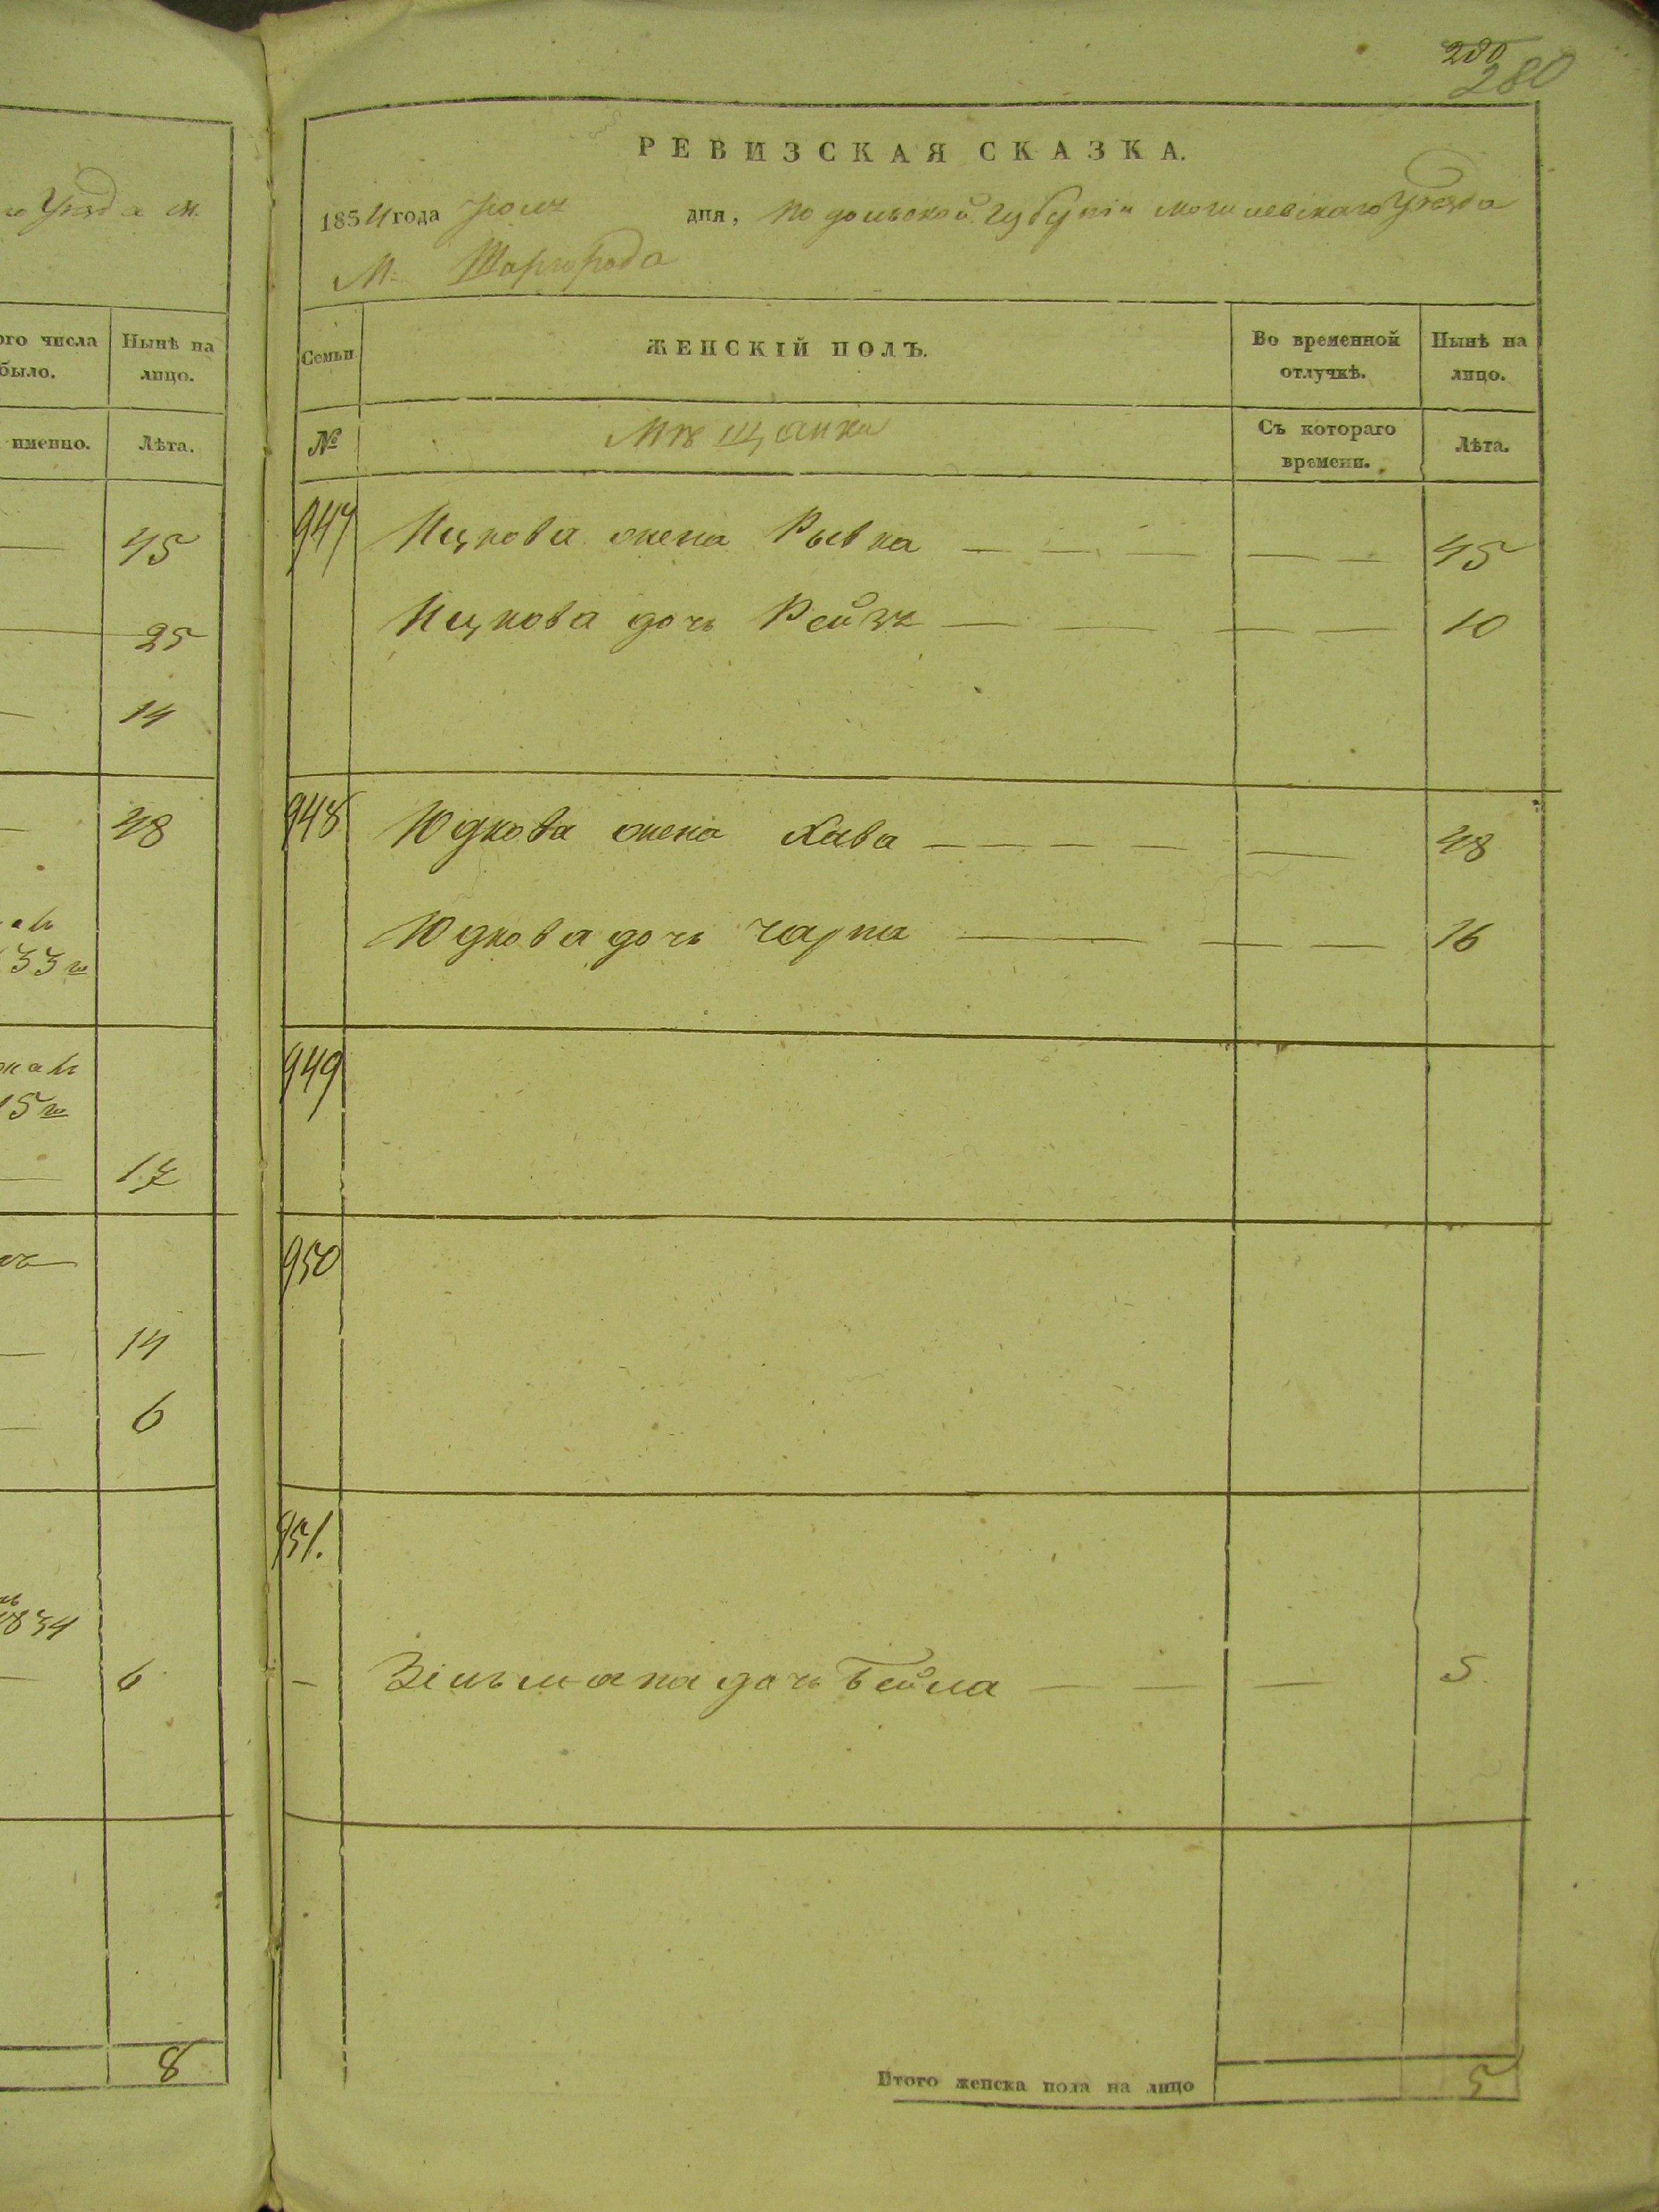 го Уезда м.
ого числа
было.
Нынѣ на
лицо.
именно.
Лѣта.
45
25
14
48
33 го
15 го
17
14
6
1834
6
8
280
280
РЕВИЗСКАЯ СКАЗКА.
1854 года Июля дня, Подольской Губернiи Могилевскаго Уезда
М: Шаргорода
Семьи
ЖЕНСКIЙ ПОЛЪ.
Во временной
отлучкѣ.
Нынѣ на
лицо.
№
Мѣщанки
Съ котораго
времени.
Лѣта.
947 Ицкова жена Рывка — — — — — 45
Ицкова дочь Рейзя — — — — 10
948 Юдкова жена Хава — — — — — 48
Юдкова дочь Чарна — — — 16
949
950
951.
— Зiльмана дочь Бейла — — — 5.
Итого женска пола на лицо 5